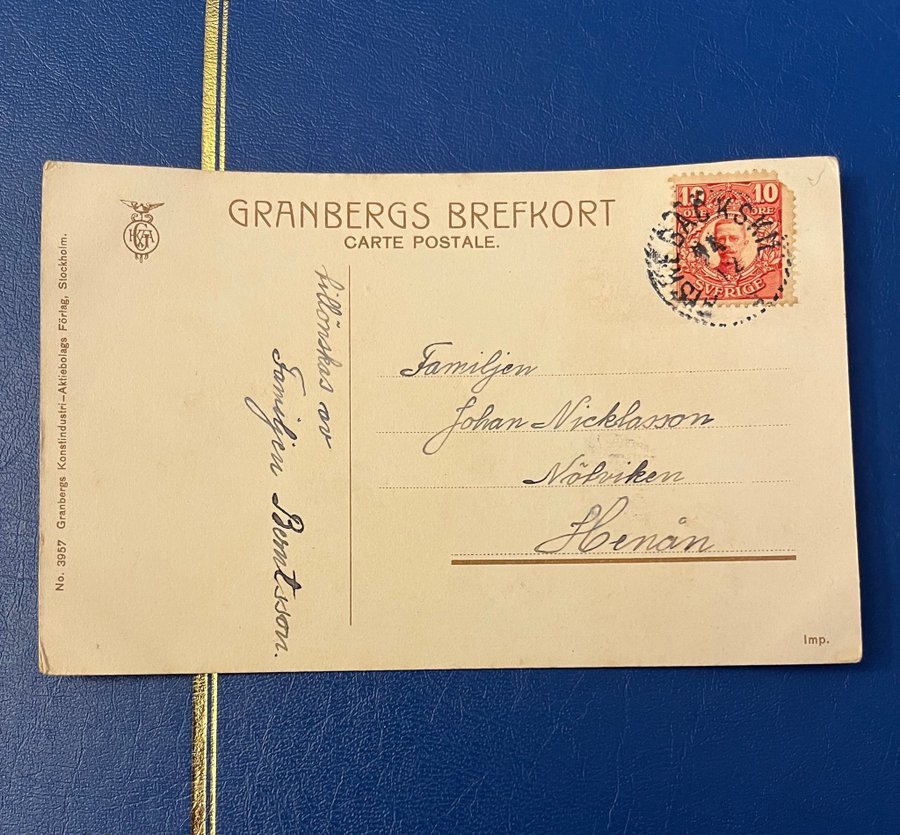 GRANBERGS BREFKORT
CARTE POSTALE.
10 10
ÖRE
SVERIGE
tillönskas av
Familjen Berntsson.
Familjen
Johan Nicklasson
Nötviken
Henån
No. 3957 Granbergs Konstindustri-Aktiebolags Förlag, Stockholm.
Imp.